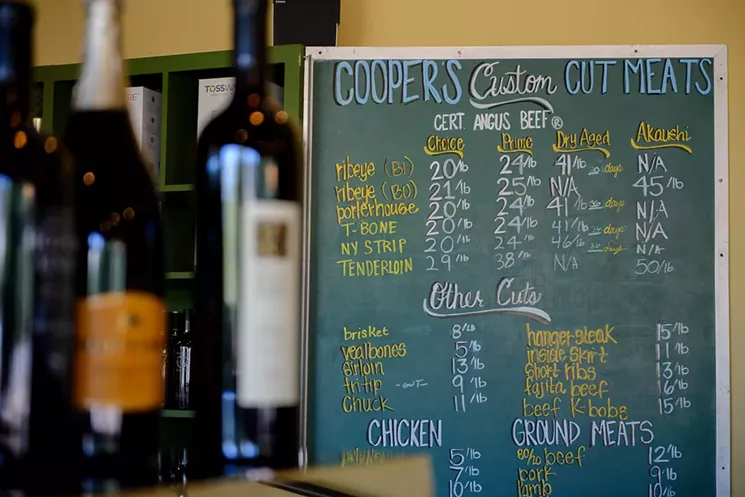 TOSSW
COOPER'S Custom CUT MEATS
CERT. ANGUS BEEF®
Choice Prime Dry Aged Akaushi
ribeye (BI) 20/lb 24/lb 41/lb days N/A
ribeye (BO) 21/lb 25/lb N/A 45/lb
porterhouse 20/lb 24/lb 41/lb days N/A
T-BONE 20/lb 24/lb 41/lb days N/A
NY STRIP 20/lb 24/lb 46/lb days N/A
TENDERLOIN 29/lb 38/lb N/A 50/lb
Other Cuts
brisket 8/lb
vealbones 5/lb
sirloin 13/lb
tri-tip -OUT- 9/lb
Chuck 11/lb
hanger steak 15/lb
inside skirt 11/lb
short ribs 13/lb
fajita beef 16/lb
beef K-bobs 15/lb
CHICKEN
5/lb
7/lb
10/lb
GROUND MEATS
80/20 beef 12/lb
pork 9/lb
lamb